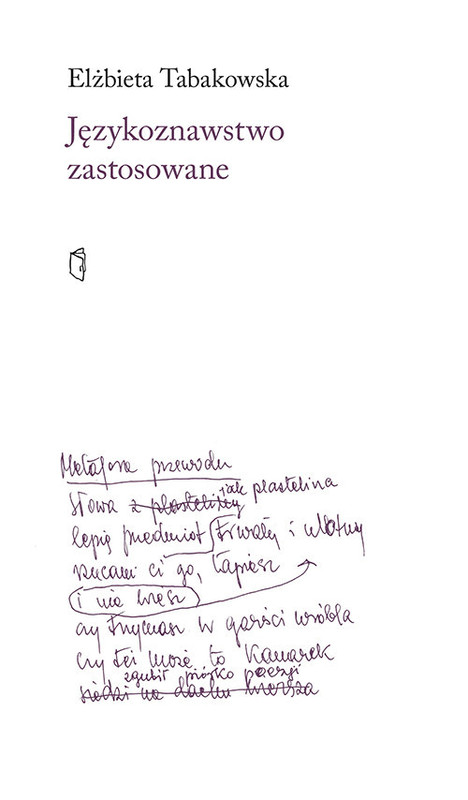 Elżbieta Tabakowska
Językoznawstwo
zastosowane
Metafora przewodu
słowa z plasteliny jak plastelina
lepię przedmiot trwały i ulotny
rzucam ci go, łapiesz
i nie wiesz
czy trzymasz w garści wróbla
czy też może to kanarek
zgubił piórko poezji
siedzi na dachu wiersza